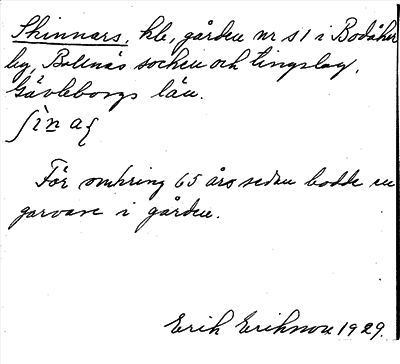 Skinnars, hle, gården nr 51 i Bodåker
by, Bollnäs socken och tingslag,
Gävleborgs län.
För omkring 65 års sedan bodde en
garvare i gården.
Erik Erikson 1929.